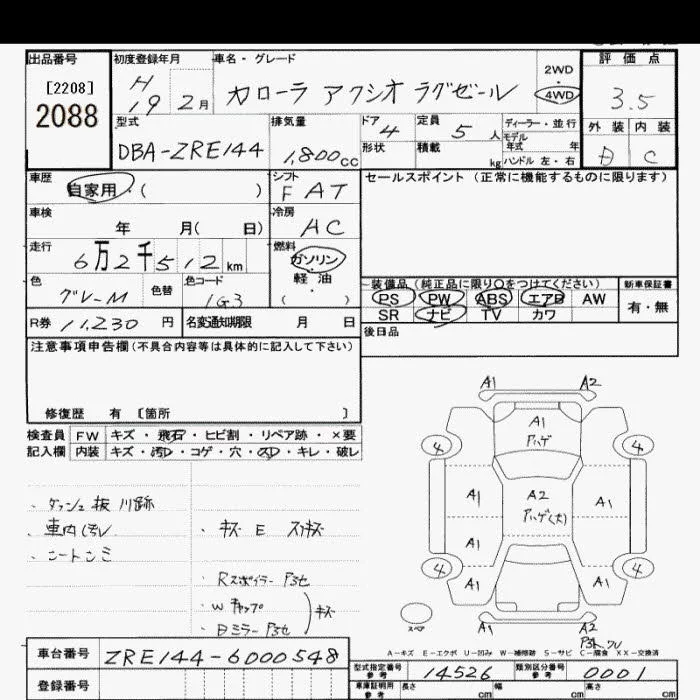 出品番号
[2208]
2088
初度登録年月
H
19 2月
車名・グレード
カローラ アクシオ ラグゼール
2WD
4WD
評価点
3.5
外装 内装
D C
型式
DBA-ZRE144
排気量
1,800cc
ドア
4
定員
5人
形状
積載
kg
ディーラー・並行
モデル
年式 年
ハンドル 左・右
車歴
自家用・( )
シフト
F AT
セールスポイント (正常に機能するものに限ります)
車検
年 月( 日)
冷房
AC
走行
6万2千512km
燃料
ガソリン
軽油
( )
色
グレーM
色替
色コード
1G3
装備品 (純正品に限り○をつけてください)
新車保証書
PS PW ABS エアB AW
有・無
SR ナビ TV カワ
R券 11,230円
名変通知期限 月 日
後日品
注意事項申告欄(不具合内容等は具体的に記入して下さい)
修復歴 有 〔箇所 〕
検査員
記入欄
FW キズ・飛石・ヒビ割・リペア跡・×要
内装 キズ・汚D・コゲ・穴・スD・キレ・破レ
・ダッシュ板 川跡
・車内汚レ
・シートシミ
・キズ E スリキズ
・Rスポイラー
・W キャップ
・Dミラー
キズ
A1 A2
A1
ハゲ
4 4
A1
A2
ハゲ(大)
A1
A1
4 4
A1 A1
スペア
A1 A2
A-キズ E-エクボ U-凹み W-補修跡 S-サビ C-腐食 XX-交換済
車台番号
ZRE144-6000548
登録番号
型式指定番号
参考
14526
類別区分番号
参考
0001
車庫証明用
参考
長さ cm
幅 cm
高さ cm